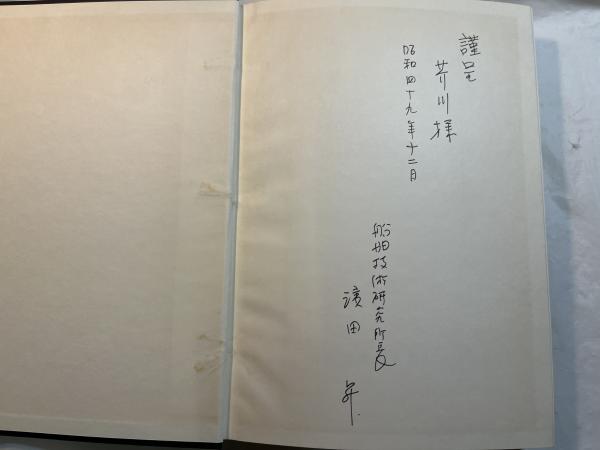 謹呈
芥川様
昭和四十九年十二月
船舶技術研究所長
濱田昇